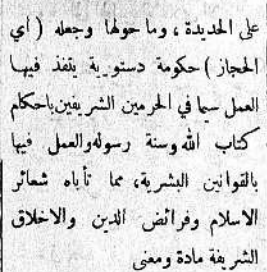 على الحديدة ، وما حولها وجعله ( اي
الحجاز ) حكومة دستورية ينفذ فيها
العمل سيما في الحرمين الشريفين باحكام
كتاب الله وسنة رسوله والعمل فيها
بالقوانين البشرية، مما تأباه شعائر
الاسلام وفرائض الدين والاخلاق
الشريفة مادة ومعنى